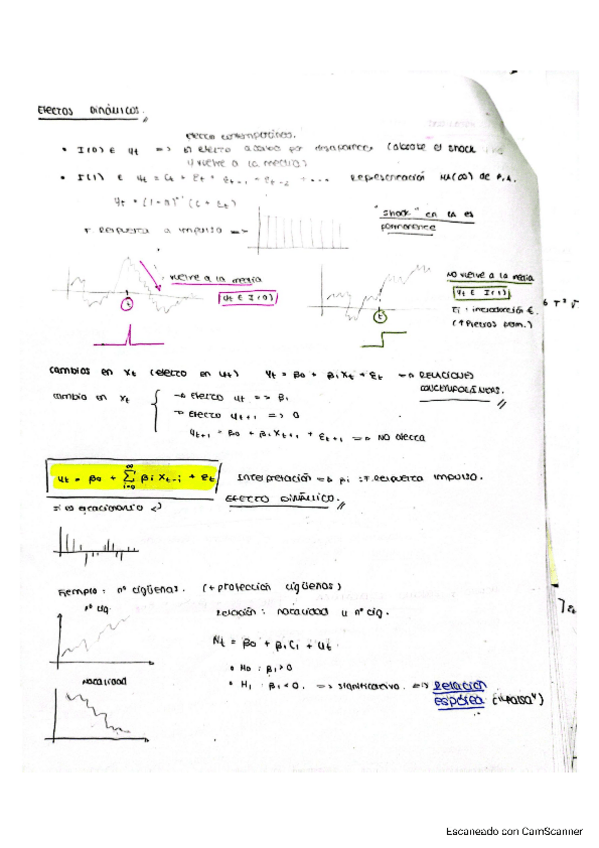 Efectos Dinámicos.
efecto contemporáneo.
• I(0) ∈ yt => El efecto acaba por desaparecer (absorbe el shock
y vuelve a la media)
• I(1) ∈ yt = Ct + Et + Et-1 + Et-2 + .... Representación MA(∞) de P.A.
yt = (1-n)⁻¹ (c + Et)
F. Respuesta a impulso =>
"Shock" en t es
permanente
vuelve a la media
yt ∈ I(0)
t
No vuelve a la media
yt ∈ I(1)
t
Ej: introducción €.
Cambios en Xt (efecto en yt) yt = β0 + β1Xt + Et => RELACIONES
CONTEMPORÁNEAS.
Cambio en Xt
→ Efecto yt => β1
→ Efecto yt+1 => 0
yt+1 = β0 + β1Xt+1 + Et+1 => NO afecta
yt = β0 + ∞ Σ i=0 βi Xt-i + Et
Interpretación => βi : F. Respuesta impulso.
EFECTO DINÁMICO.
Si es estacionario
Ejemplo: nº cigüeñas. (+ protección cigüeñas)
nº cig.
Relación: natalidad y nº cig.
Nt = β0 + β1C1 + ut
• H0: β1 > 0
• H1: β1 < 0. => significativo. => Relación
espúrea ("falsa")
Natalidad
Escaneado con CamScanner